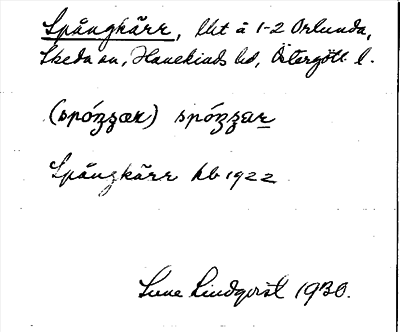 Spångkärr, lht å 1-2 Orlunda,
Skeda sn, Hanekinds hd, Östergötl l.
(spóʒʒær) spóʒʒar
Spångkärr hb 1922
Sune Lindqvist 1930.